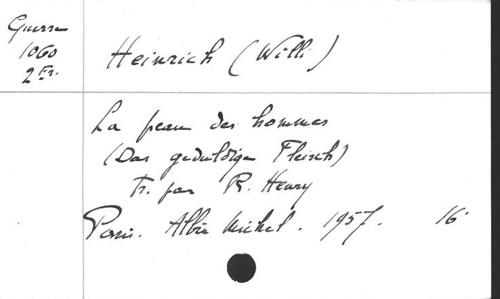 Guerre
1060
2 Fr.
Heinrich (Willi)
La peau des hommes
(Das geduldige Fleisch)
Tr. par R. Henry
Paris. Albin Michel. 1957. 16°